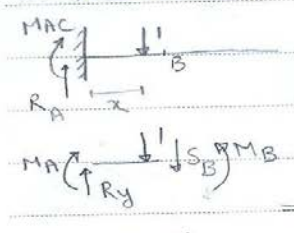 MAC
1
B
RA
x
MA
Ry
1
SB
MB